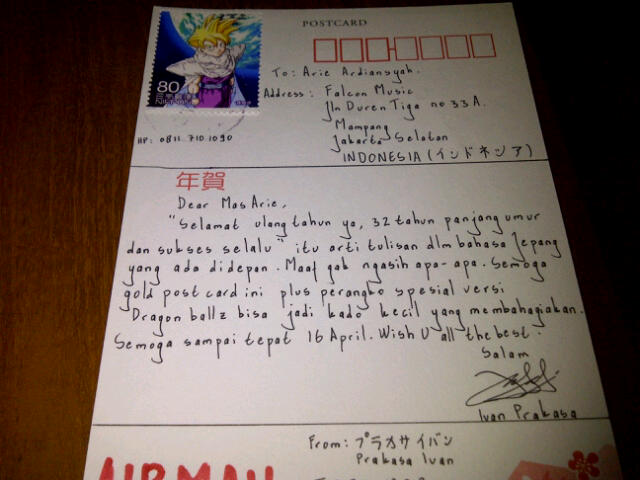 POSTCARD
80
NIPPON
To: Arie Ardiansyah.
Address: Falcon Music
Jln Duren Tiga no 33A.
Mampang
Jakarta Selatan
INDONESIA (インドネシア)
HP: 0811.710.1090
年賀
Dear Mas Arie,
"Selamat ulang tahun ya, 32 tahun panjang umur
dan sukses selalu" itu arti tulisan dlm bahasa Jepang
yang ada didepan. Maaf gak ngasih apa-apa. Semoga
gold post card ini plus perangko spesial versi
Dragon ballz bisa jadi kado kecil yang membahagiakan.
Semoga sampai tepat 16 April. Wish U all the best.
Salam
Ivan Prakasa
From: プラカサイバン
Prakasa Ivan
AIRMAIL